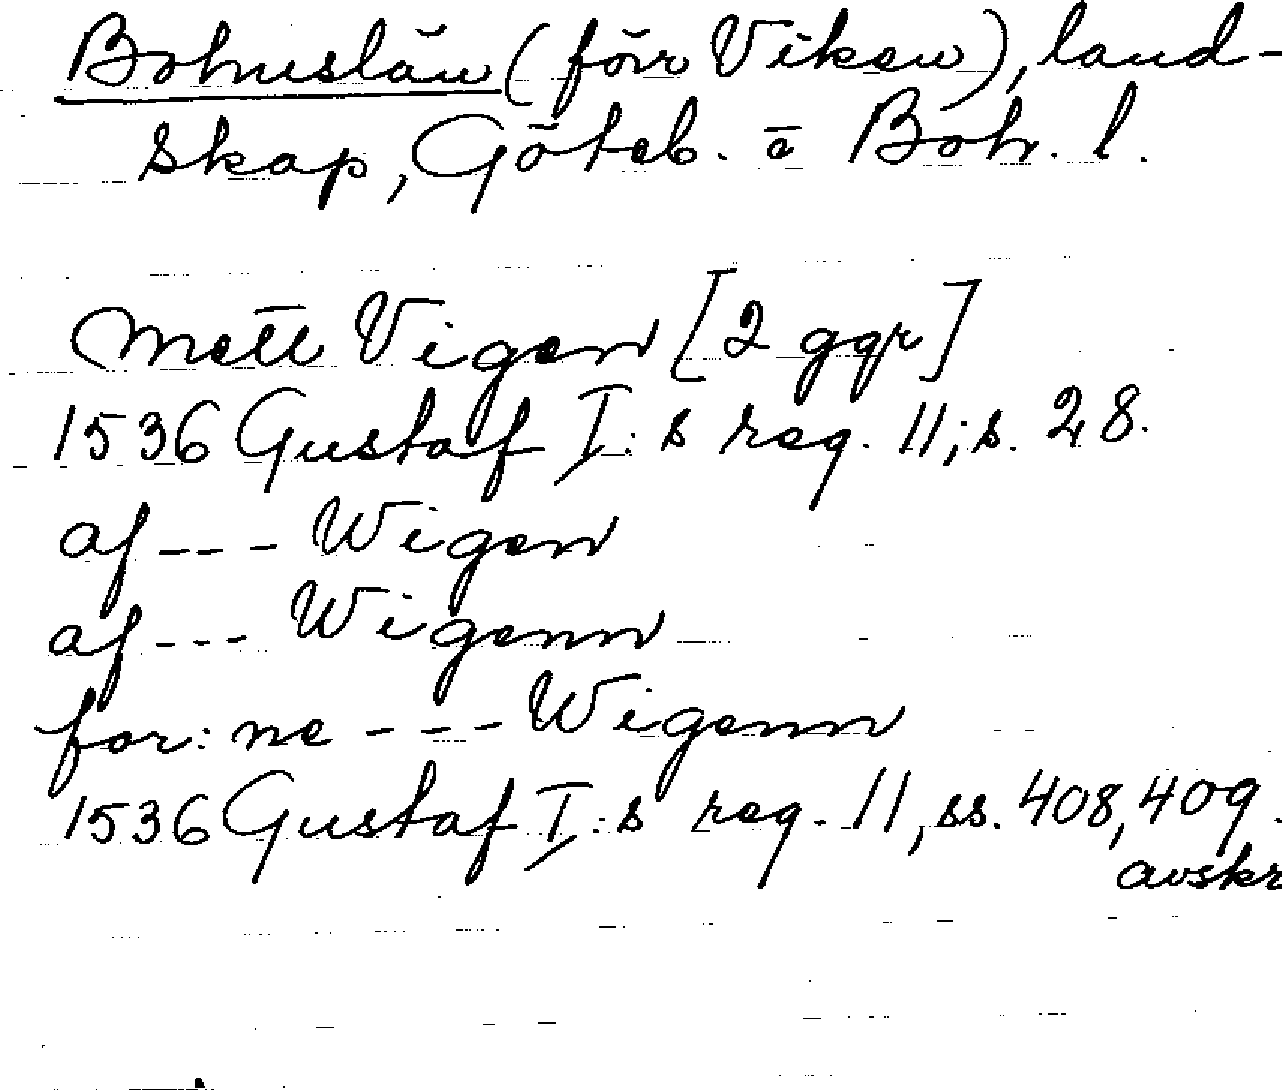 Bohuslän (förr Viken), land-
skap, Göteb. o Boh. l.
mett Vigen [2 ggr]
1536 Gustaf I:s reg. 11; s. 28.
af --- Wigen
af --- Wigenn
for:ne --- Wigenn
1536 Gustaf I:s reg. 11, ss. 408, 409.
avskr